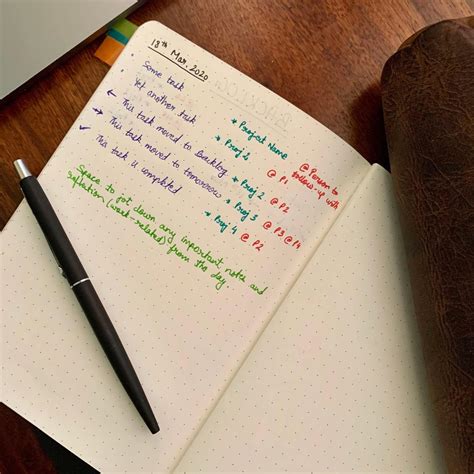 18th Mar, 2020
· Some task * Project Name @ Person to
follow-up with
· Yet another task * Proj 1 @ P1
← This task moved to Backlog * Proj 2 @ P2
→ This task moved to tomorrow * Proj 3 @ P3 @ P4
✓ This task is completed * Proj 4 @ P2
Space to jot down any important notes and
reflection (work-related) from the day.